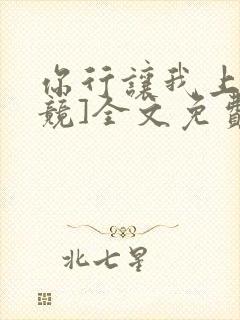 你行讓我上
競]全文免費
北七星